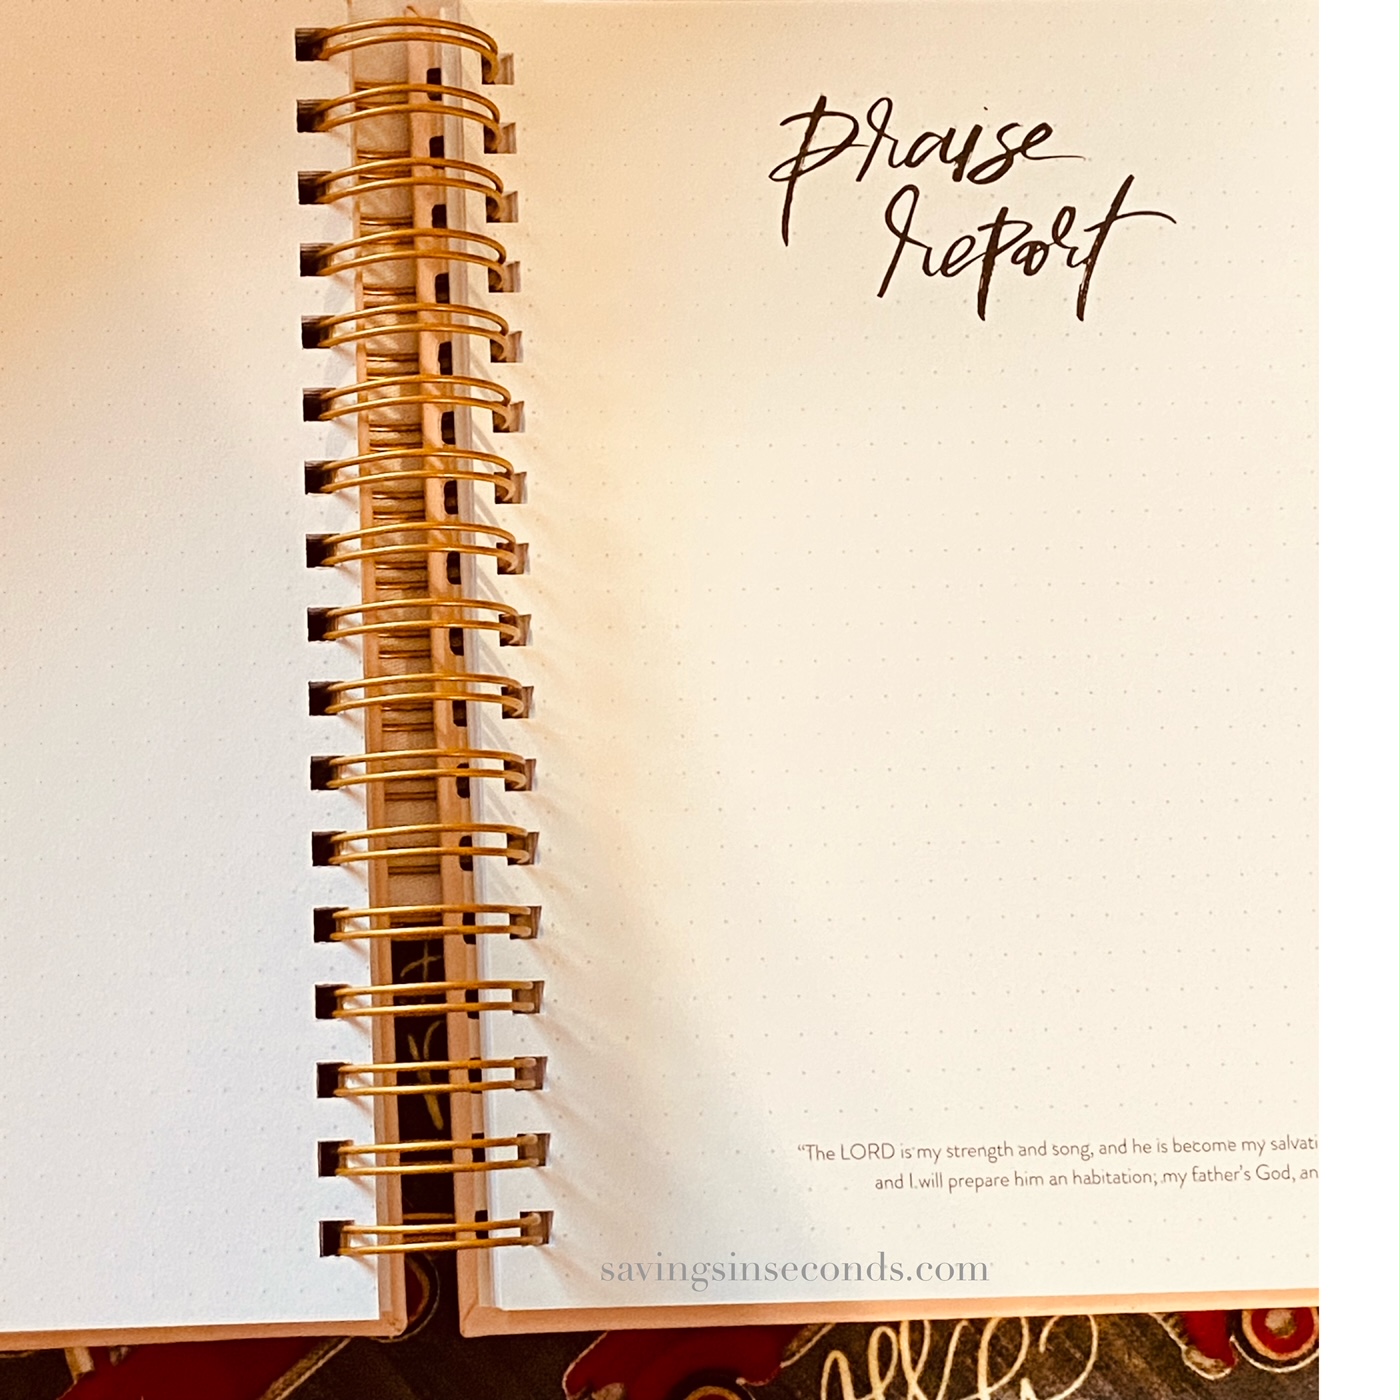 praise
report
“The LORD is my strength and song, and he is become my salvati
and I will prepare him an habitation; my father’s God, an
savingsinseconds.com